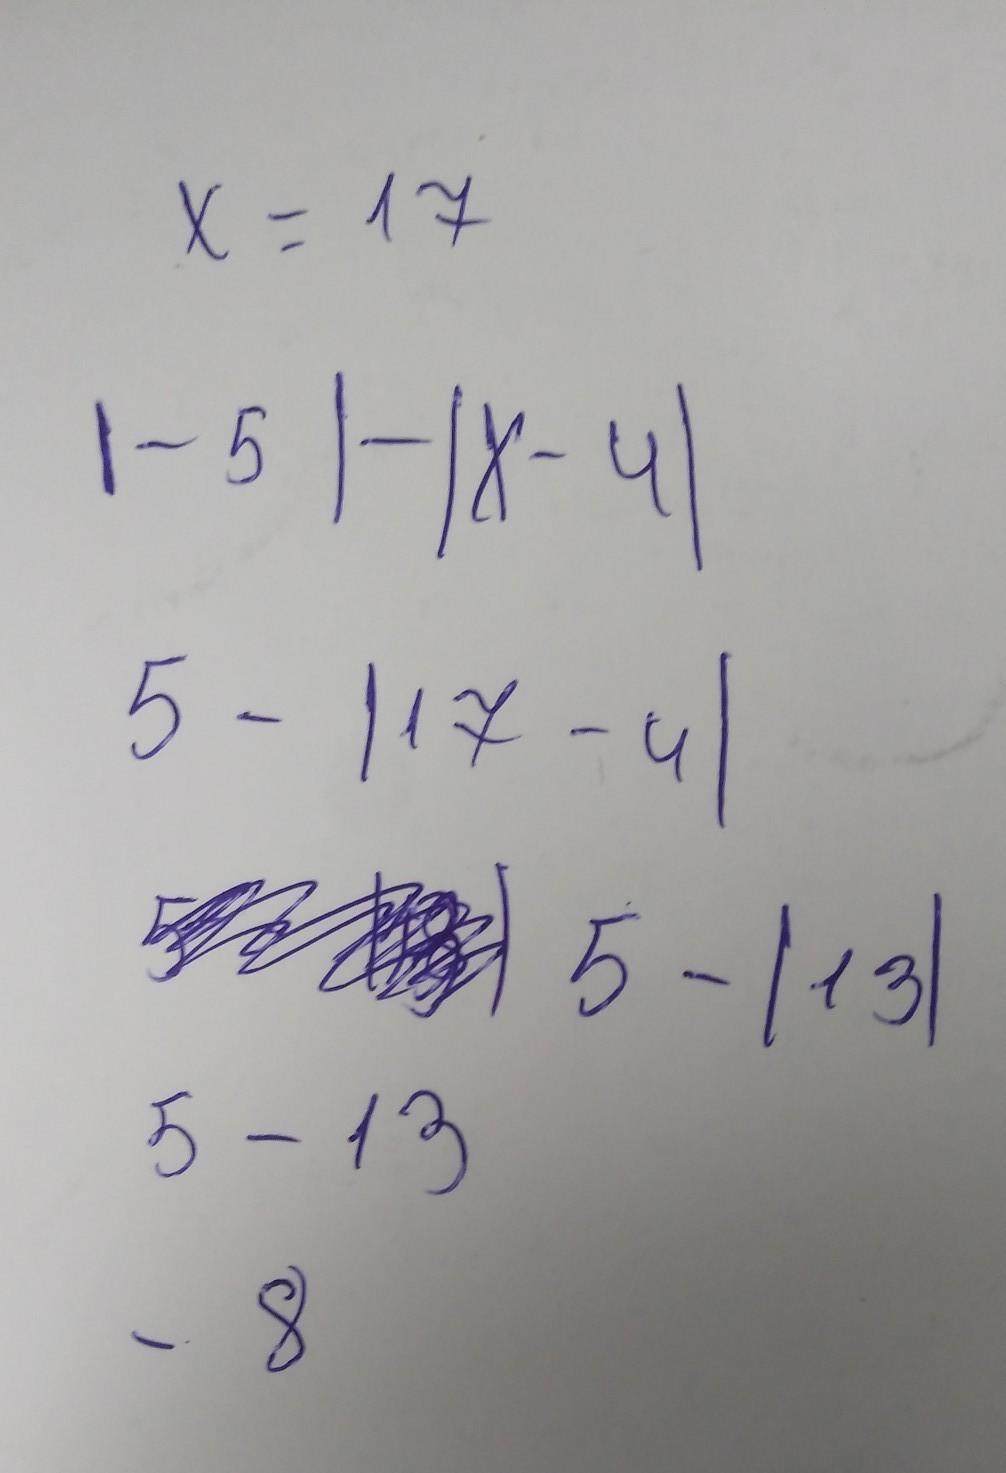 x = 17
|-5|-|x-4|
5 - |17 - 4|
5 - |13|
5 - 13
- 8